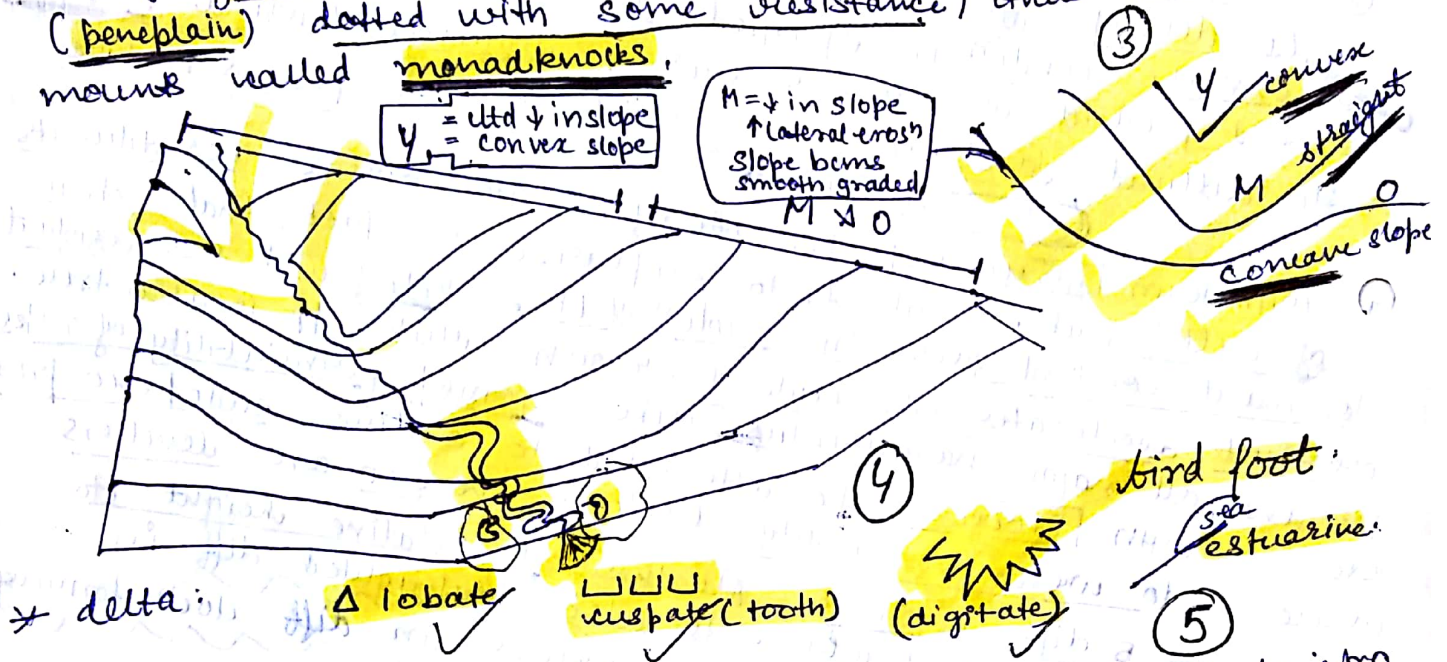 (peneplain) dotted with some resistance,
mounts called monadknocks.
Y = ltd ↓ in slope
= convex slope
M = ↓ in slope
↑ lateral eros^n
slope bcms
smooth graded
M ↘ O
③
Y convex
M straight
O
concave slope
④
bird foot.
sea
estuarine.
* delta:
Δ lobate
cuspate (tooth)
(digitate)
⑤